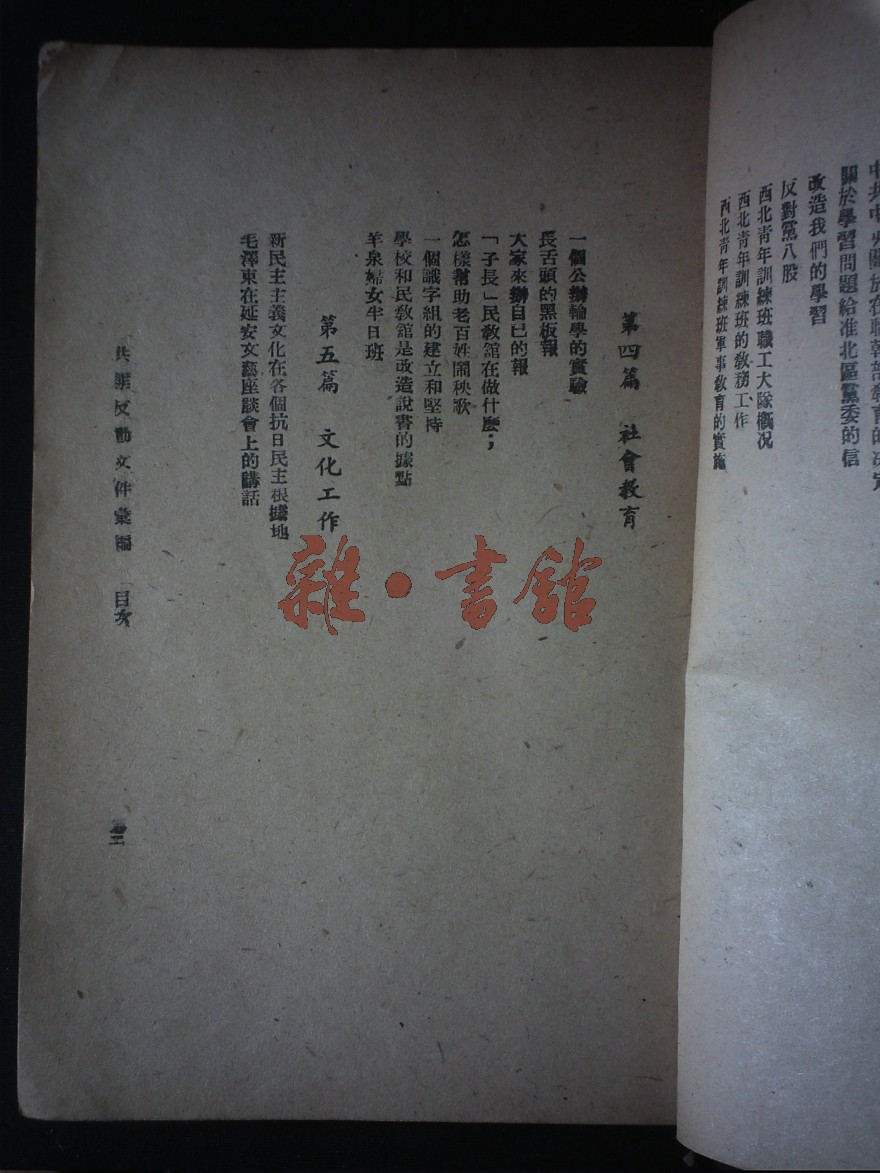 中共中央關於在職幹部教育的決定
關於學習問題給淮北區黨委的信
改造我們的學習
反對黨八股
西北青年訓練班職工大隊概况
西北青年訓練班的敎務工作
西北青年訓練班軍事敎育的實施
第四篇 社會教育
一個公辦輪學的實驗
長舌頭的黑板報
大家來辦自己的報
「子長」民敎舘在做什麽；
怎樣幫助老百姓鬧秧歌
一個識字組的建立和堅持
學校和民敎舘是改造說書的據點
羊泉婦女半日班
第五篇 文化工作
新民主主義文化在各個抗日民主根據地
毛澤東在延安文藝座談會上的講話
共匪反動文件彙編 目次
雜·書館